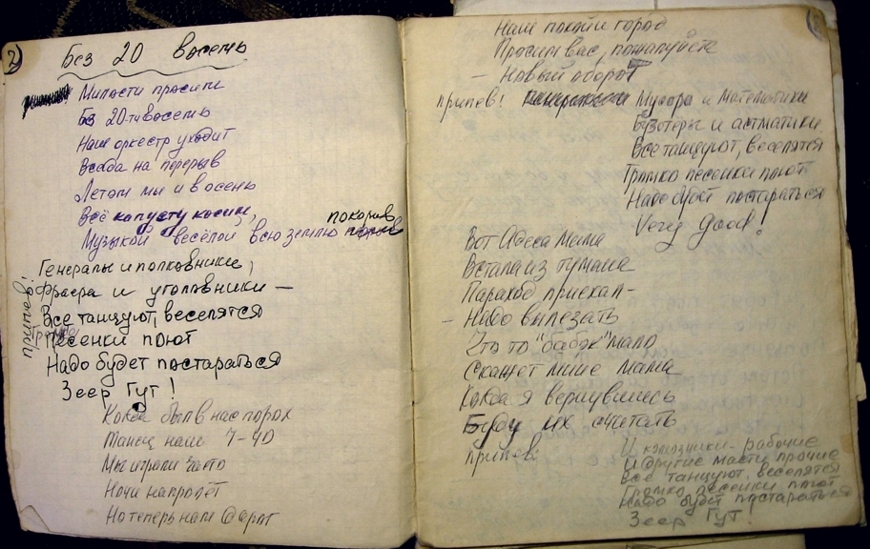 2
Без 20 восемь
Милости просим
Без 20ти восемь
Наш оркестр уходит
Всегда на перерыв
Летом мы и в осень
Всё капусту косим,
Музыкой весёлой всю землю покорив
Генералы и полковники,
Фраера и уголовники —
Все танцуют, веселятся
Громко
Песенки поют
Надо будет постараться
Зеер Гут!
припев:
Когда был в нас порох
Танец наш 7-40
Мы играли часто
Ночи напролёт
Но теперь нам
Наш покой и город
Просим вас, пожалуйста
— Новый оборот
припев: Мусора и математики
Бузотеры и астматики
Все танцуют, веселятся
Громко песенки поют
Надо будет постараться
Very good!
Вот Одесса Мама
Встала из тумана
Параход приехал —
— Надо вылезать
Что то "бабок" мало
Скажет мине мама
Когда я вернувшись
Буду их считать
припев:
И колхозники - рабочие
И другие масти прочие
Все танцуют, веселятся
Громко песенки поют
Надо будет постараться
Зеер Гут!